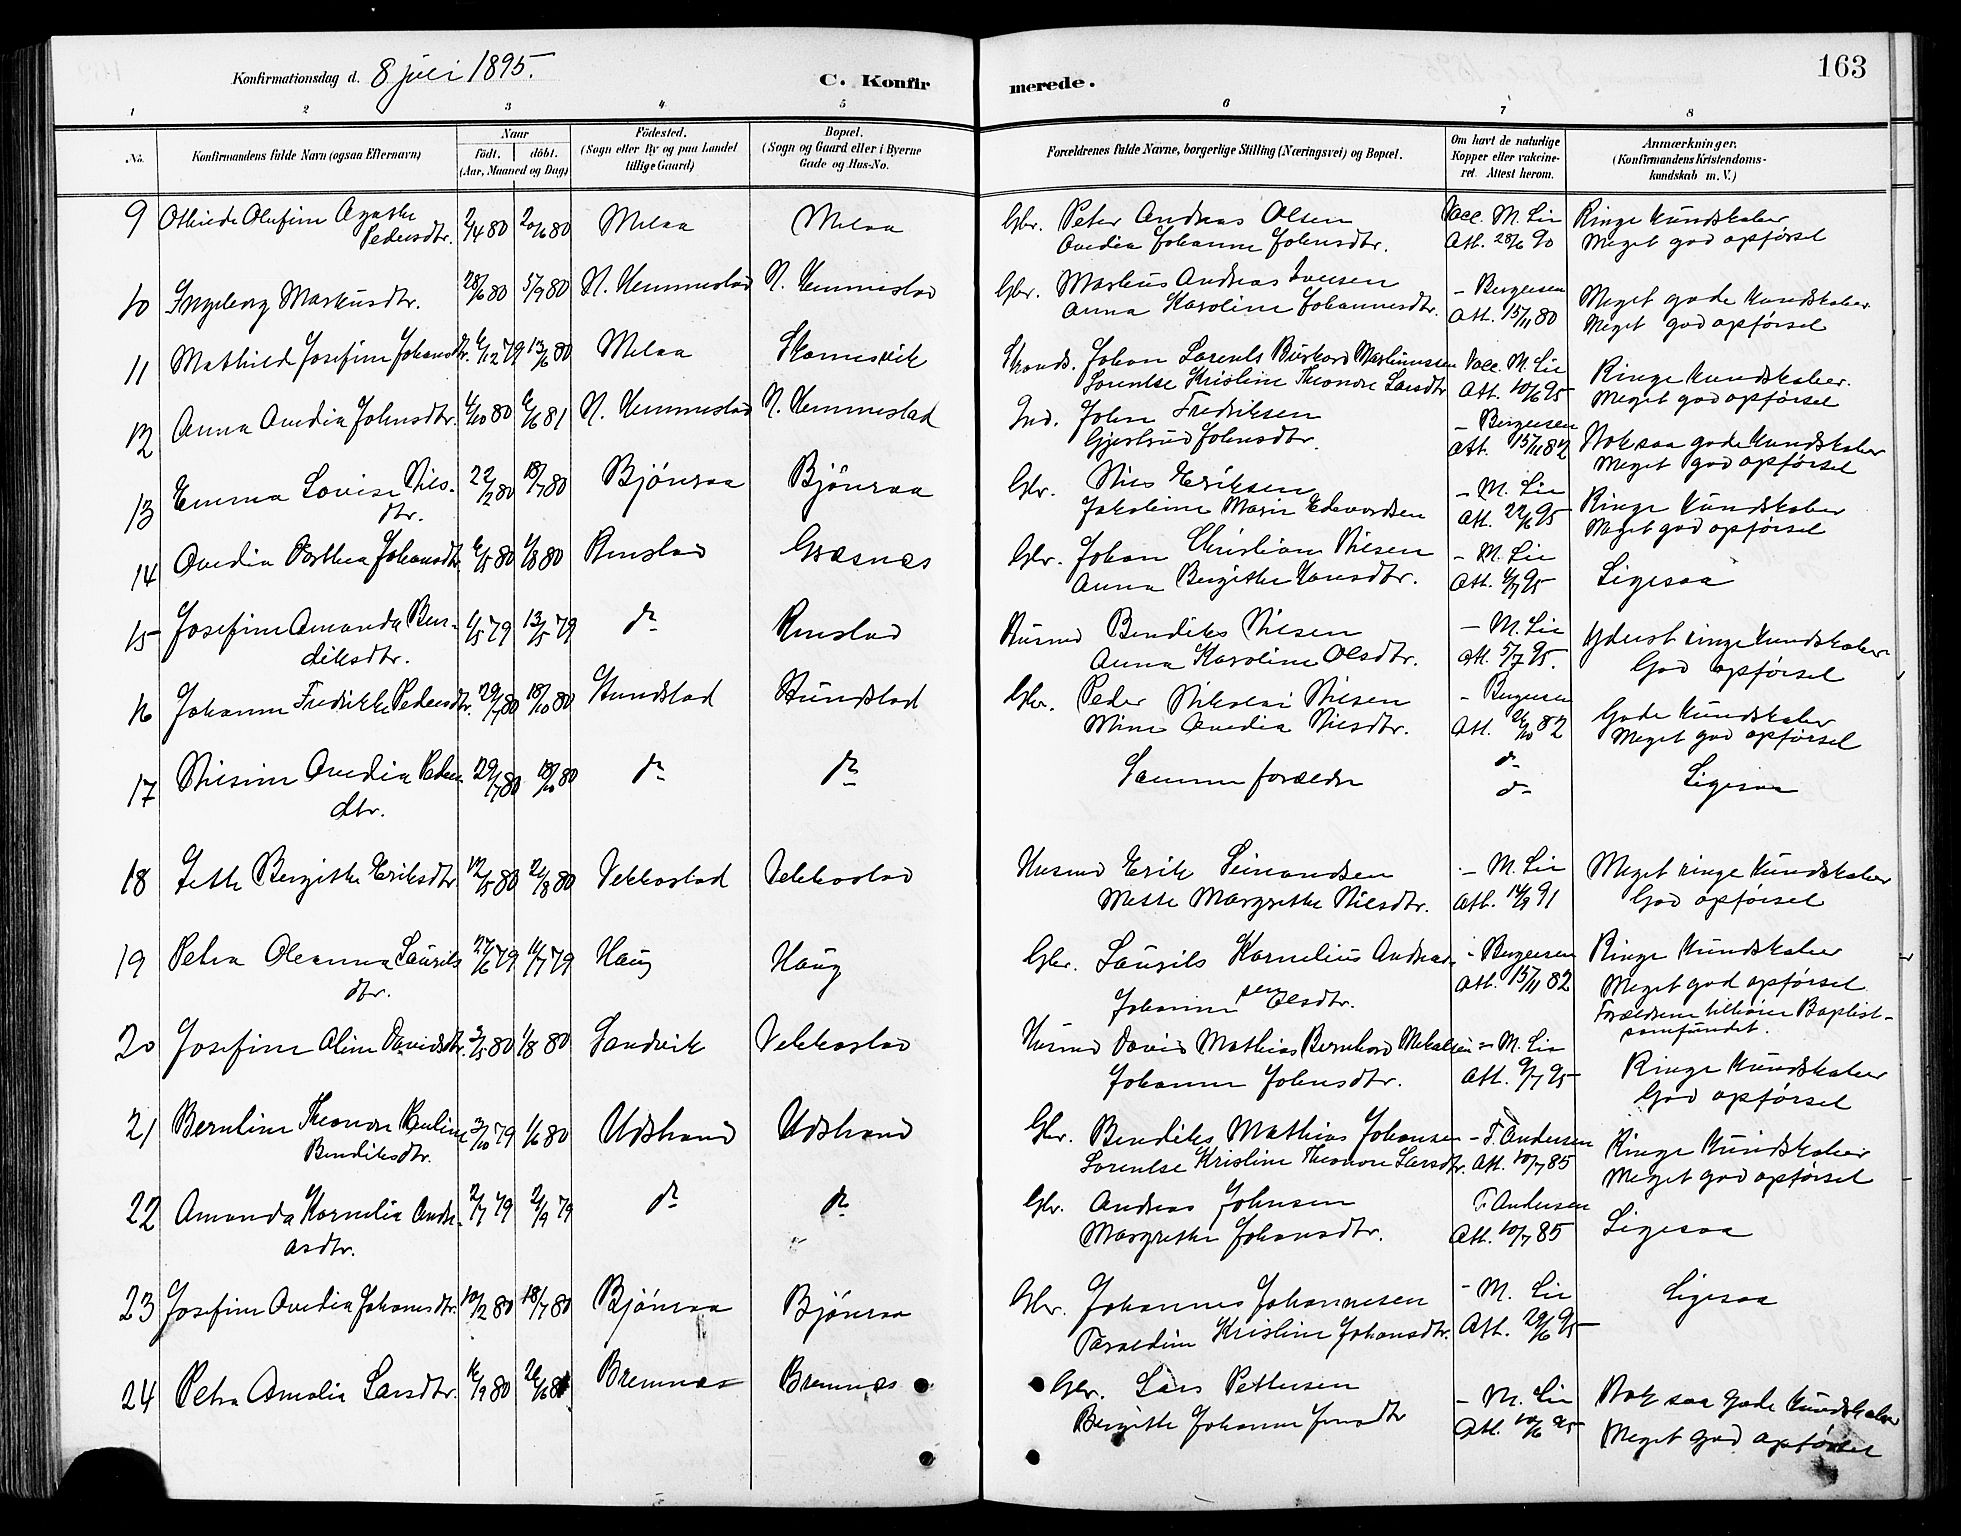 163
Konfirmationsdag d. 8 juli 1895.
C. Konfirmerede.
1 2 3 4 5 6 7 8
No. Konfirmandens fulde Navn (ogsaa Efternavn) Naar født. døbt. (Aar, Maaned og Dag) Fødested. (Sogn eller By og paa Landet tillige Gaard) Bopæl. (Sogn og Gaard eller i Byerne Gade og Hus-No. Forældrenes fulde Navne, borgerlige Stilling (Næringsvei) og Bopæl. Om havt de naturlige Kopper eller vakcineret. Attest herom. Anmærkninger. (Konfirmandens Kristendomskundskab m. V.)
9 Olufine Agathe 2/4 80 20/6 80 Melaa Melaa Gbr. Peter Andreas Olsen Vacc. M. Lie Ringe Kundskaber
Pedersdtr. Ovedia Johanne Johnsdtr. Att. 28/6 90 Meget god opførsel
10 Ingeborg Markusdtr. 28/6 80 5/9 80 N. Kemmestad N. Kemmestad Gbr. Markus Andreas Iversen - Bergersen Meget gode Kundskaber
Anna Karoline Johannesdtr. Att. 15/11 80 Meget god opførsel
11 Mathilde Josefine Johansdtr. 6/12 79 13/6 80 Melaa Skomesvik Johan Lorents Martinusen Vacc. M. Lie Ringe Kundskaber.
Lorentse Kristine Theonore Larsdtr Att. 10/6 95 Meget god opførsel
12 Anna Ovedia Johnsdtr. 4/10 80 6/6 81 N. Kemmestad N. Kemmestad Ind. John Fredriksen - Bergersen Nok saa gode Kundskaber
Gjertrud Johnsdtr. Att. 15/11 82 Meget god opførsel
13 Emma Lovise Nils- 22/2 80 18/7 80 Bjønraa Bjønraa Gbr. Nils Eriksen - M. Lie Ringe Kundskaber
dtr. Jakobine Marie Edvardsen Att. 22/6 95 Meget god opførsel
14 Ovedia Dorthea Johansdtr. 6/5 80 1/8 80 Renstad Græsnæs Gbr. Johan Christian Nilsen - M. Lie Ligesaa
Anna Bergitte Hansdtr. Att. 6/7 95
15 Josefine Amanda Ben- 1/5 79 13/5 79 do Renstad Husmd Bendiks Nilsen - M. Lie Yderst ringe Kundskaber
diksdtr. Anna Karoline Olsdtr. Att. 5/7 95. God opførsel
16 Johanne Fredrikke Pedersdtr. 29/7 80 18/10 80 Hundstad Hundstad Gbr. Peder Nikolai Nilsen - Bergersen Gode Kundskaber
Mine Ovedia Nilsdtr. Att. 26/10 82 Meget god opførsel
17 Nilsine Ovedia Peders- 29/7 80 18/10 80 do do Samme forældre do Ligesaa
dtr. do
18 Jette Bergitte Eriksdtr. 12/5 80 21/8 80 Vekkostad Vekkostad Husmd Erik Simonsen - M. Lie Meget ringe Kundskaber
Mette Margrethe Nilsdtr. Att. 14/9 91 God opførsel
19 Petra Oleanna Laurits 27/6 79 11/7 79 Haug Haug Gbr. Laurits Kornelius Andreas- - Bergersen Ringe Kundskaber
dtr. sen Johanne Olsdtr. Att. 15/11 82 Meget god opførsel.
Forældrene tilhører Baptist-
samfundet.
20 Josefine Aline Davidsdtr. 3/5 80 1/8 80 Sandvik Vekkostad Husmd David Mathias Bernhard Mikalsen - M. Lie Ringe Kundskaber
Johanne Johnsdtr. Att. 9/7 95 God opførsel
21 Berntine Theonore Pauline 3/10 79 1/6 80 Udstrand Udstrand Gbr. Bendiks Mathias Johansen - F. Andersen Ringe Kundskaber
Bendiksdtr. Lorentse Kristine Theonore Larsdtr. Att. 10/7 85 Meget god opførsel
22 Amanda Kornelia Andre- 2/7 79 2/9 79 do do Gbr. Andreas Johnsen F. Andersen Ligesaa
asdtr. Margrethe Johansdtr. Att. 10/7 85
23 Josefine Ovedia Johansdtr. 10/2 80 18/7 80 Bjønraa Bjønraa Gbr. Johannes Johannesen - M. Lie Ligesaa
Kristine Johansdtr. Att. 29/6 95
24 Petra Amalia Larsdtr. 16/9 80 Bremnæs Bremnæs Gbr. Lars Pettersen - M. Lie Nok saa gode Kundskaber
Bergitte Johanne Jensdtr Att. 10/6 95 Meget god opførsel